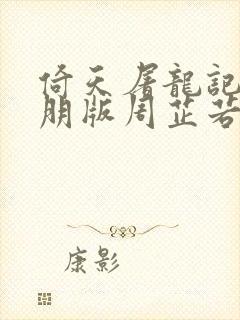 倚天屠龍記
朋版周芷若
康影